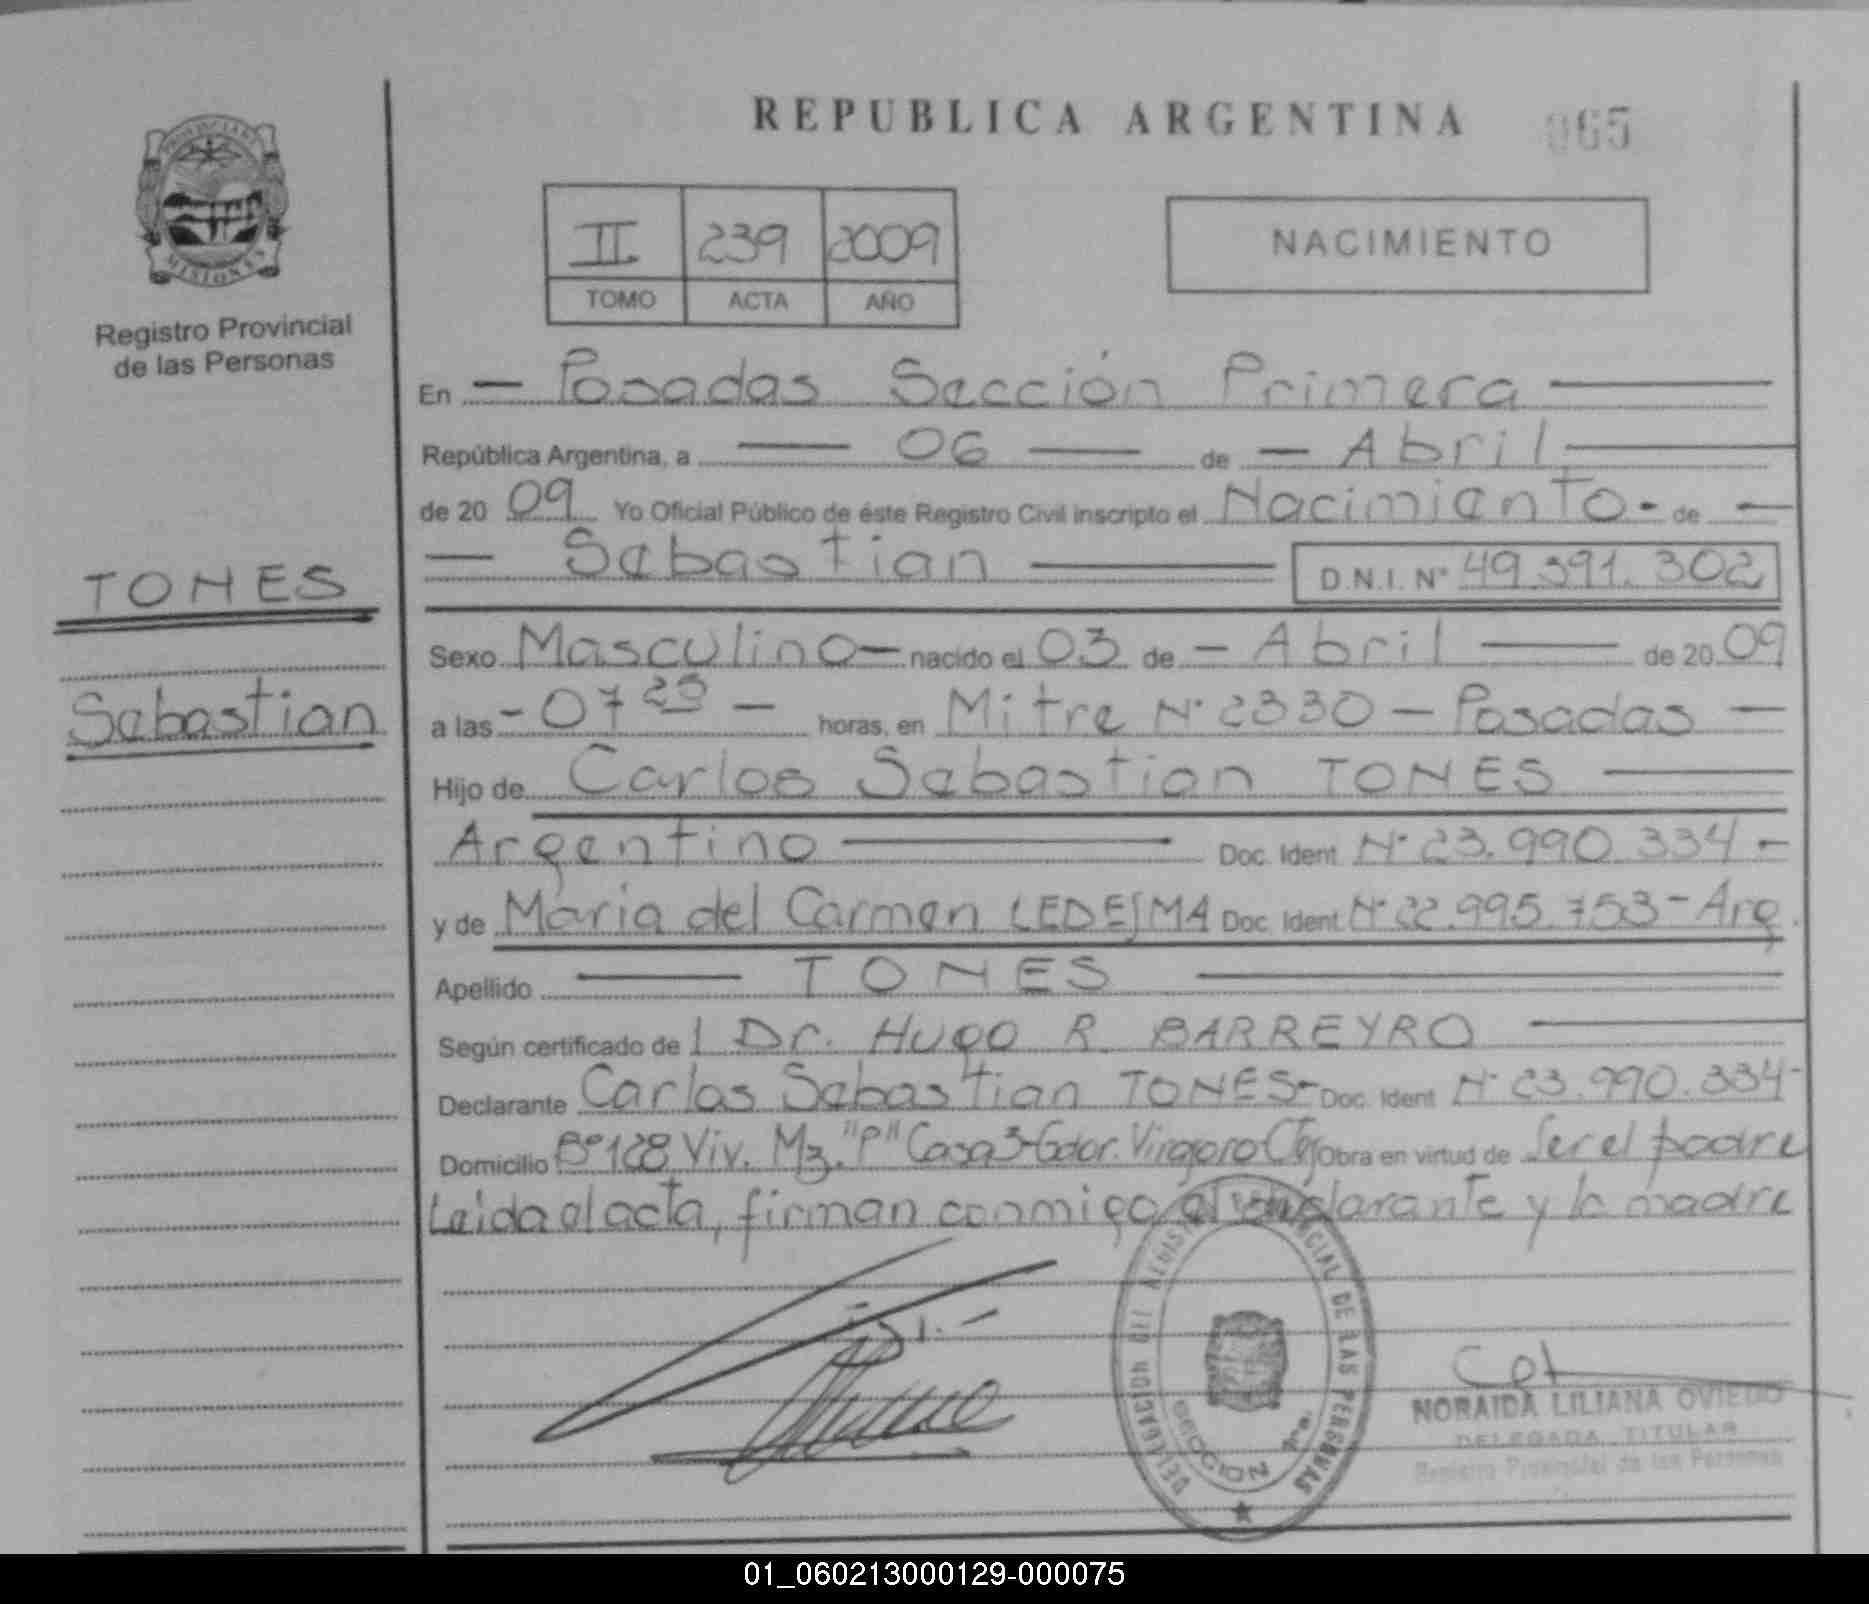 REPUBLICA ARGENTINA
065
PROVINCIA DE
MISIONES
Registro Provincial
de las Personas
II 239 2009
TOMO ACTA AÑO
NACIMIENTO
En — Posadas Sección Primera —
República Argentina, a — 06 — de — Abril —
de 20 09 Yo Oficial Público de éste Registro Civil inscripto el Nacimiento - de —
— Sebastian — D.N.I. Nº 49.391.302
TONES
Sebastian
Sexo Masculino — nacido el 03 de — Abril — de 20 09
a las - 07 25 — horas, en Mitre Nº 2330 — Posadas —
Hijo de Carlos Sebastian TONES —
Argentino — Doc. Ident Nº 23.990.334 -
y de Maria del Carmen LEDESMA Doc. Ident Nº 22.995.753 - Arg.
Apellido — TONES —
Según certificado de 1 Dr. Hugo R. BARREYRO —
Declarante Carlos Sebastian TONES - Doc. Ident Nº 23.990.334 -
Domicilio Bº 128 Viv. Mz. "P" Casa 3 - Gdor. Virasoro Obra en virtud de Ser el padre
Leida el acta, firman conmigo el declarante y la madre
DELEGACION DEL REGISTRO PROVINCIAL DE LAS PERSONAS
SECCION 1ra.
NORAIDA LILIANA OVIEDO
DELEGADA TITULAR
Registro Provincial de las Personas
01_060213000129-000075